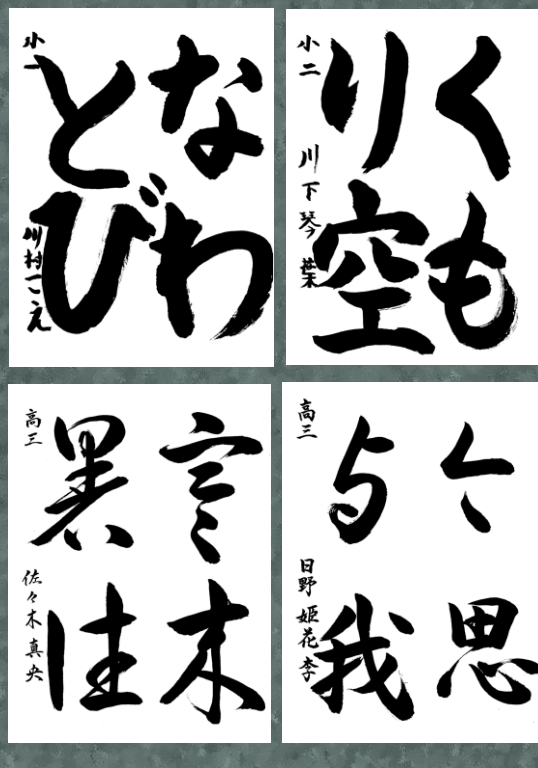 なわ
とび
小一 川村
くも
り空
小二 川下琴葉
寒来
暑往
高三 佐々木真央
今思
与我
高三 日野姫花李